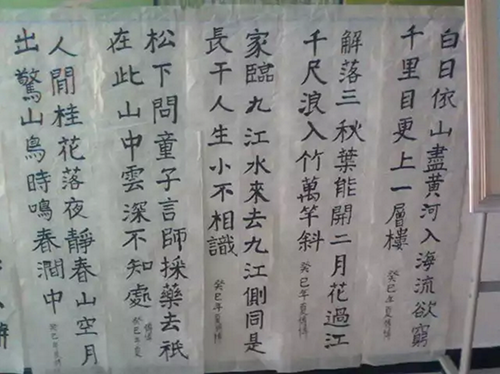 白日依山盡黃河入海流欲窮
千里目更上一層樓
癸巳年夏
解落三秋葉能開二月花過江
千尺浪入竹萬竿斜
癸巳年夏
家臨九江水來去九江側同是
長干人生小不相識
癸巳年夏
松下問童子言師採藥去祇
在此山中雲深不知處
癸巳年夏
人閒桂花落夜靜春山空月
出驚山鳥時鳴春澗中
癸巳年夏